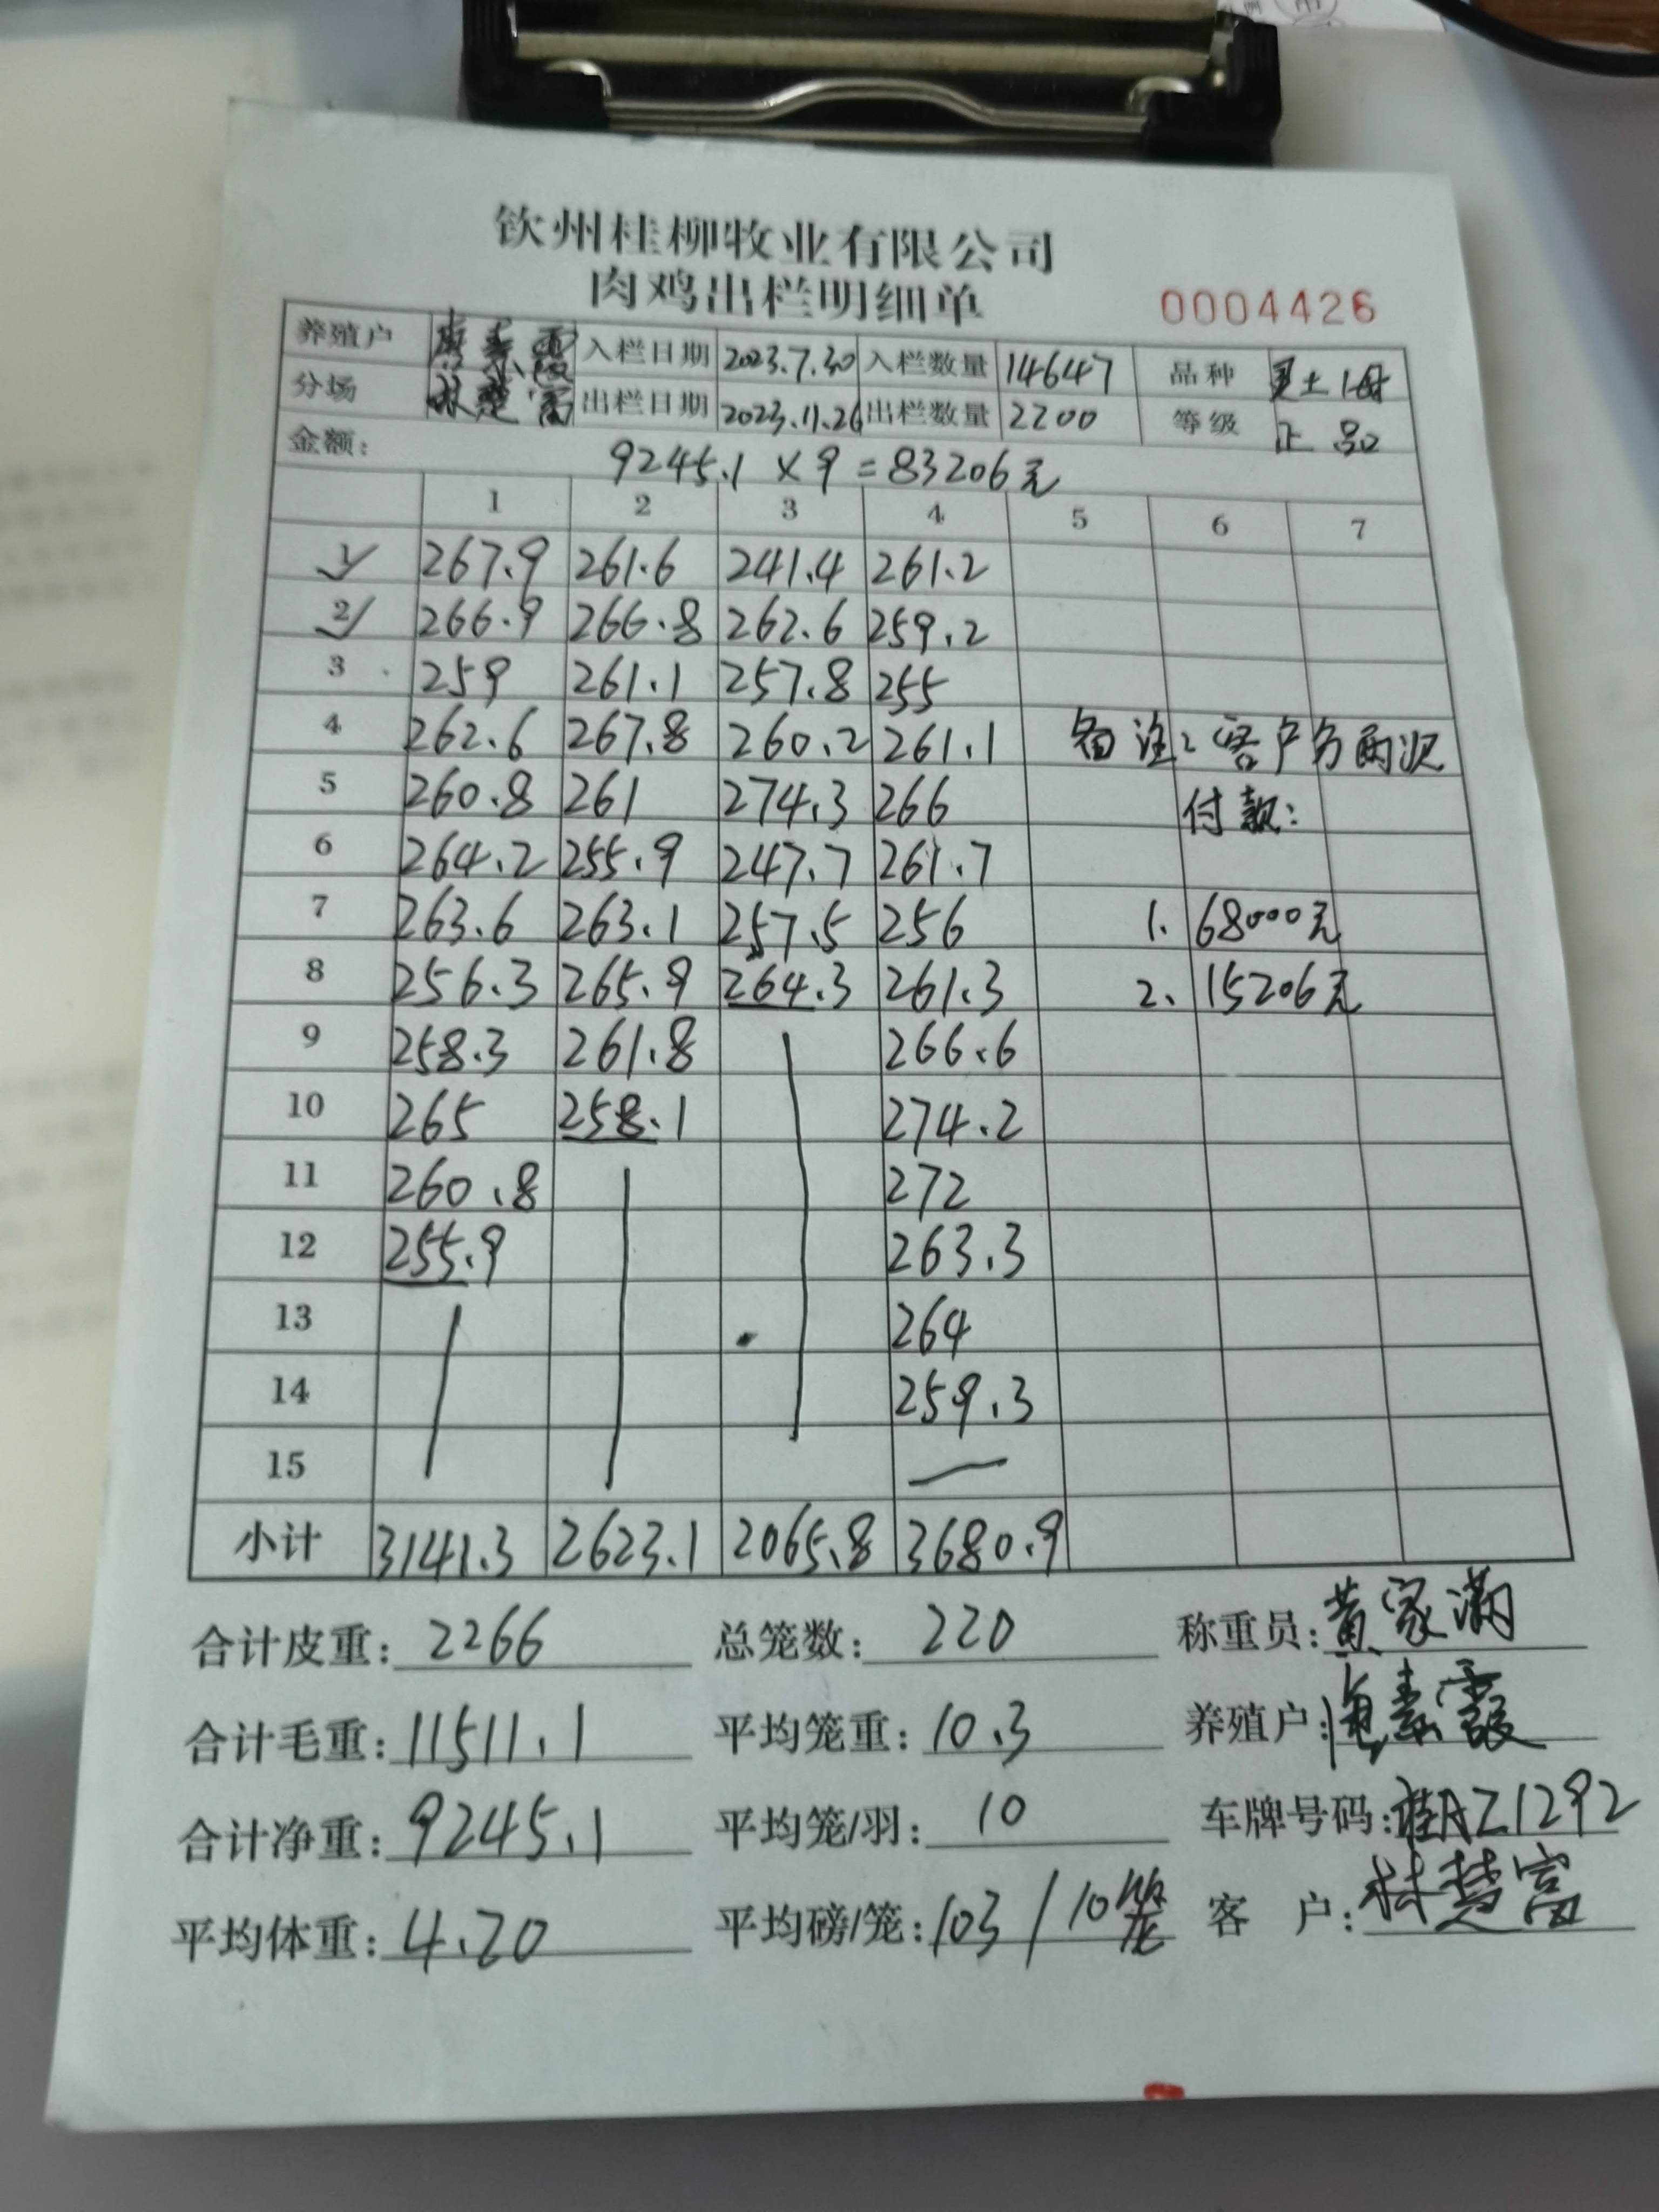 钦州桂柳牧业有限公司
肉鸡出栏明细单
0004426
养殖户 素霞 入栏日期 2023.7.30 入栏数量 14647 品种 土1母
分场 林楚富 出栏日期 2023.11.26 出栏数量 2200 等级 正品
金额: 9245.1 × 9 = 83206元
1 2 3 4 5 6 7
1 267.9 261.6 241.4 261.2
2 266.9 266.8 262.6 259.2
3 259 261.1 257.8 255
4 262.6 267.8 260.2 261.1 备注: 客户分两次
5 260.8 261 274.3 266 付款:
6 264.2 255.9 247.7 261.7
7 263.6 263.1 257.5 256 1. 68000元
8 256.3 265.9 264.3 261.3 2. 15206元
9 258.3 261.8 266.6
10 265 258.1 274.2
11 260.8 272
12 255.9 263.3
13 264
14 259.3
15
小计 3141.3 2623.1 2065.8 3680.9
合计皮重: 2266 总笼数: 220 称重员: 黄家满
合计毛重: 11511.1 平均笼重: 10.3 养殖户: 素霞
合计净重: 9245.1 平均笼/羽: 10 车牌号码: 桂AZ1292
平均体重: 4.20 平均磅/笼: 103/10笼 客户: 林楚富